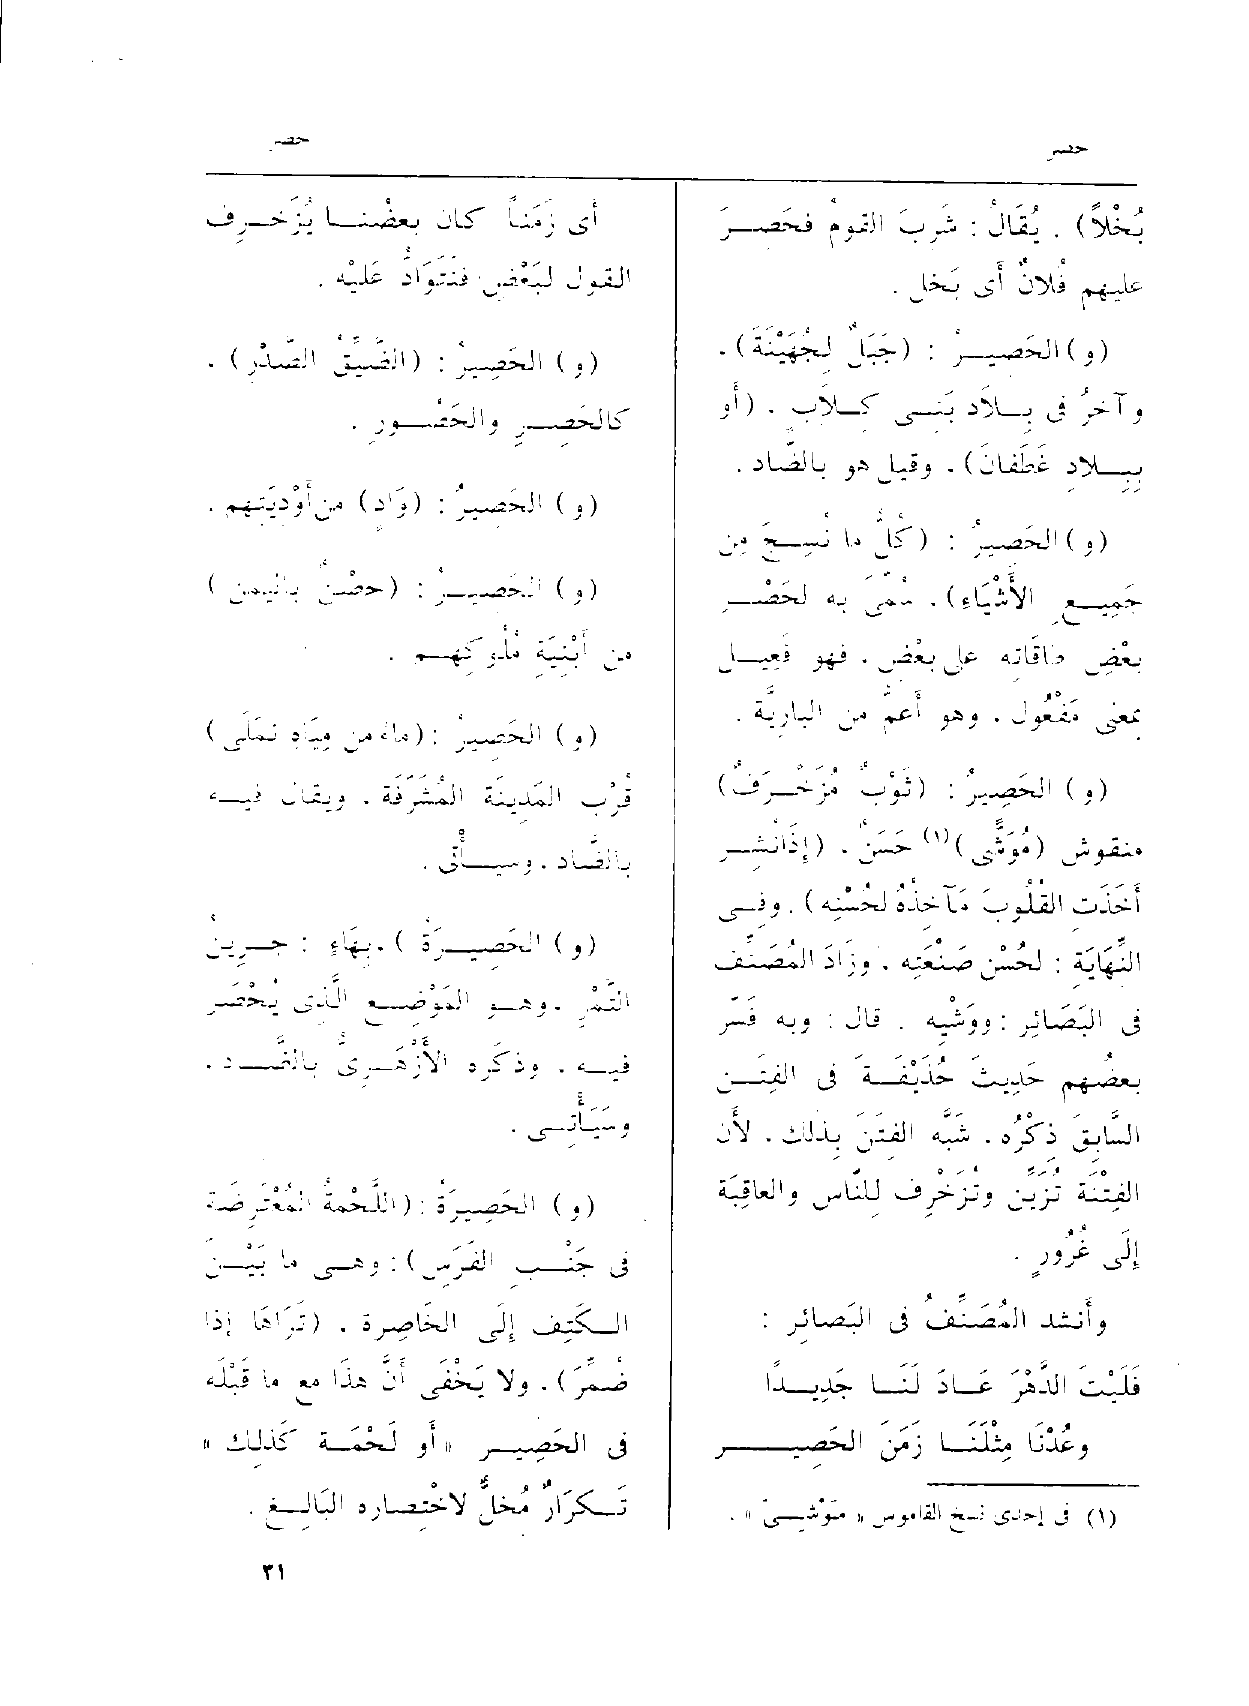 حصر
حصر
بُخْلاً) . يُقَالُ : شَرِبَ القومُ فحَصِرَ
عليهم فُلانٌ أَى بَخِل .
(و) الحَصِيرُ : (جَبَلٌ لِجُهَيْنَةَ) .
وآخرُ فى بِلاَد بَنِى كِلاَبٍ . (أَو
بِبِلادِ غَطَفانَ) . وقيل هو بالضَّاد .
(و) الحَصِيرُ : (كُلُّ ما نُسِجَ مِن
جَمِيعِ الأَشْيَاءِ) . سُمِّىَ به لحَصْرِ
بعْضِ طاقَاتِه على بعْضٍ . فهو فَعِيل
بمعنى مَفْعُول . وهو أَعمُّ من البارِيَّة .
(و) الحَصِيرُ : (ثَوْبٌ مُزَخْرَفٌ)
منقوش (مُوَشًّى)(١) حَسَنٌ . (إِذَا نُشِر
أَخَذَت القُلُوبَ مَآخِذُهُ لحُسْنِه) . وفِى
النِّهَايَة : لحُسْن صَنْعَتِه . وزَادَ المُصَنِّف
فى البَصَائِرِ : ووَشْيِه . قال : وبه فَسَّر
بعضُهم حَدِيثَ حُذَيْفَةَ فى الفِتَن
السَّابِقَ ذِكْرُه . شَبَّه الفِتَنَ بذلك . لأَن
الفِتْنَة تُزَيَّن وتُزَخْرف لِلنَّاس والعاقِبَة
إِلَى غُرُورٍ .
وأَنشد المُصَنِّفُ فى البَصائِر :
فَلَيْتَ الدَّهْرَ عَادَ لَنَا جَدِيدًا
وعُدْنَا مِثْلَنَا زَمَنَ الحَصِيرِ
(١) فى إحدى نسخ القاموس « مَوْشِىّ » .
أَى زَمَناً كان بعضُنا يُزَخْرِف
القول لبَعْضٍ فنتَوَادُّ عَلَيْه .
(و) الحَصِيرُ : (الضَّيِّقُ الصَّدْرِ) .
كالحَصِرِ والحَصُورِ .
(و) الحَصِيرُ : (وَادٍ) من أَوْدِيَتِهم .
(و) الحَصِيرُ : (حِصْنٌ باليمن)
من أَبْنِيَة مُلُوكِهم .
(و) الحَصِيرُ : (ماءٌ من مِيَاهِ نَمَلَى)
قُرْب المَدِينَة المُشَرَّفَة . ويقال فيه
بالضَّاد . وسيأْتى .
(و) الحَصِيرَةُ ) . بِهَاءٍ : جَرِينُ
التَّمْرِ . وهو المَوْضِع الَّذِى يُحْصَر
فيه . وذكَره الأَزْهَرِىُّ بالضَّاد .
وسَيَأْتِى .
(و) الحَصِيرَةُ : (اللَّحْمةُ المُعْتَرِضَة
فى جَنْبِ الفَرَسِ) : وهى ما بَيْنَ
الكَتِف إِلَى الخَاصِرة . (تَرَاهَا إِذا
ضُمِّرَ) . ولا يَخْفَى أَنَّ هذَا مع ما قَبْلَه
فى الحَصِيرِ « أَو لَحْمَة كَذلِك »
تَكرَارٌ مُخلٌّ لاخْتِصارِه البَالِغِ .
٣١